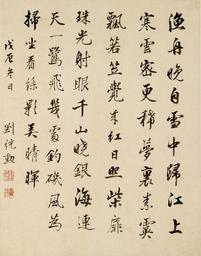 漁舟晚自雪中歸江上
寒雲密更稀夢裏素霙
飄若笠覺來紅日照柴扉
珠光射眼千山曉銀海連
天一鷺飛幾處釣磯風為
掃坐看絲影美晴暉
戊辰冬日
劉統勳